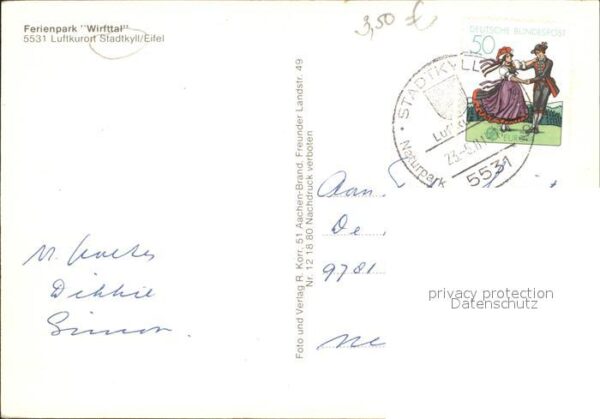 Ferienpark "Wirfttal"
5531 Luftkurort Stadtkyll/Eifel
3,50 €
DEUTSCHE BUNDESPOST
50
EUROPA
STADTKYLL
Naturpark
5531
Foto und Verlag R. Korr, 51 Aachen-Brand, Freunder Landstr. 49
Nr. 12 18 80 Nachdruck verboten
Aan
De
9781
Ne
Dikkie
Simon.
privacy protection
Datenschutz